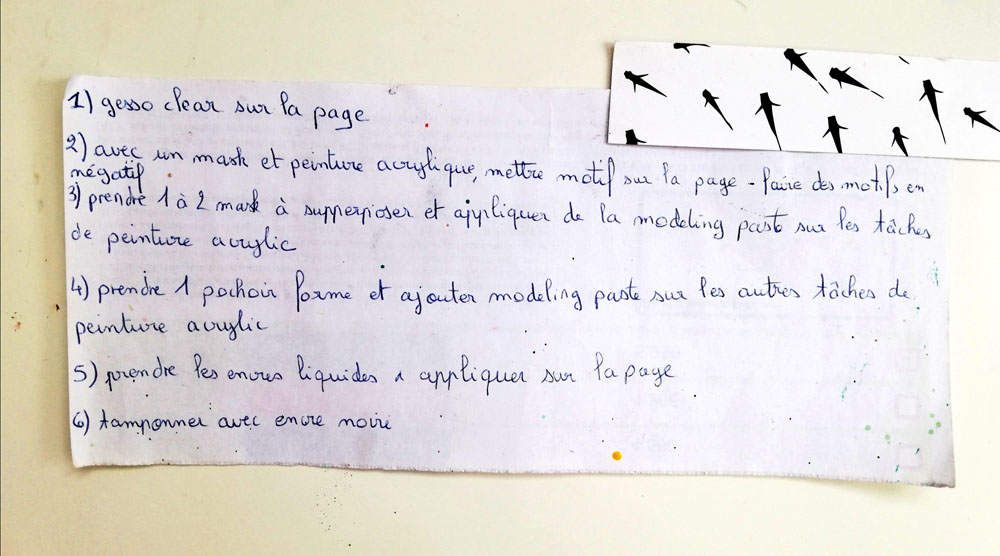 1) gesso clear sur la page
2) avec un mask et peinture acrylique, mettre motif sur la page - faire des motifs en
négatif
3) prendre 1 à 2 mask à supperposer et appliquer de la modeling past sur les tâches
de peinture acrylic
4) prendre 1 pochoir forme et ajouter modeling paste sur les autres tâches de
peinture acrylic
5) prendre les encres liquides & appliquer sur la page
6) tamponner avec encre noire